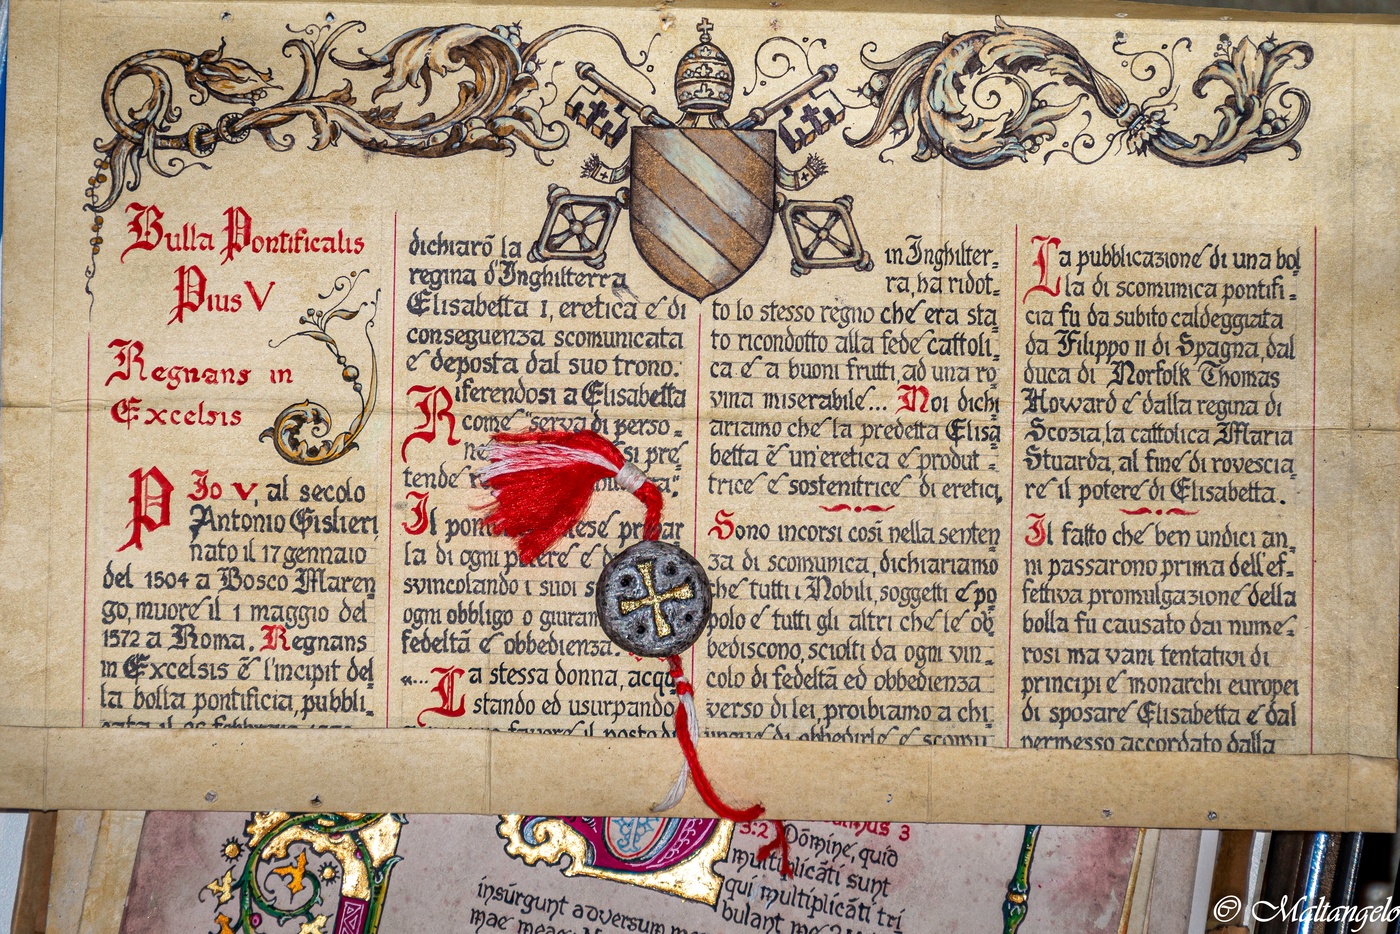 Bulla Pontificalis
Pius V
Regnans in
Excelsis
Pio V, al secolo
Antonio Gislieri
nato il 17 gennaio
del 1504 a Bosco Maren
go, muore il 1 maggio del
1572 a Roma. Regnans
in Excelsis è l'incipit del
la bolla pontificia, pubbli=
dichiarò la
regina d'Inghilterra
Elisabetta I, eretica e di
conseguenza scomunicata
e deposta dal suo trono:
Riferendosi a Elisabetta
come "serva di perso=
si pre
tende
Il
la di ogni e
svincolando i suoi
ogni obbligo o
fedeltà e obbedienza.
«... La stessa donna,
stando ed usurpando
favore il posto di
in Inghilter=
ra, ha ridot=
to lo stesso regno che era sta
to ricondotto alla fede cattoli=
ca e a buoni frutti, ad una ro
vina miserabile... Noi dichi
ariamo che la predetta Elisa
betta è un'eretica e produt=
trice e sostenitrice di eretici,
Sono incorsi così nella senten
za di scomunica, dichiariamo
che tutti i Nobili, soggetti e po
polo e tutti gli altri che le ob
bediscono, sciolti da ogni vin=
colo di fedeltà ed obbedienza
verso di lei, proibiamo a chi
di obbedirle e scomu
La pubblicazione di una bol
la di scomunica pontifi=
cia fu da subito caldeggiata
da Filippo II di Spagna, dal
duca di Norfolk Thomas
Howard e dalla regina di
Scozia, la cattolica Maria
Stuarda, al fine di rovescia
re il potere di Elisabetta.
Il fatto che ben undici an=
ni passarono prima dell'ef=
fettiva promulgazione della
bolla fu causato dai nume=
rosi ma vani tentativi di
principi e monarchi europei
di sposare Elisabetta e dal
permesso accordato dalla
3
3:2 Dōmine, quid
multiplicāti sunt
qui multiplicāti tri
bulant me?
insúrgunt adversum me
mae
© Maltangelo